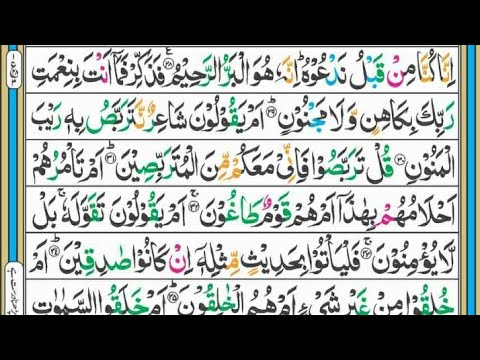 اِنَّا كُنَّا مِنْ قَبْلُ نَدْعُوْهُ ؕ اِنَّهٗ هُوَ الْبَرُّ الرَّحِيْمُ ۝۲۸ فَذَكِّرْ فَمَاۤ اَنْتَ بِنِعْمَتِ
رَبِّكَ بِكَاهِنٍ وَّلَا مَجْنُوْنٍ ۝۲۹ اَمْ يَقُوْلُوْنَ شَاعِرٌ نَّتَرَبَّصُ بِهٖ رَيْبَ
الْمَنُوْنِ ۝۳۰ قُلْ تَرَبَّصُوْا فَاِنِّيْ مَعَكُمْ مِّنَ الْمُتَرَبِّصِيْنَ ۝۳۱ اَمْ تَاْمُرُهُمْ
اَحْلَامُهُمْ بِهٰذَاۤ اَمْ هُمْ قَوْمٌ طَاغُوْنَ ۝۳۲ اَمْ يَقُوْلُوْنَ تَقَوَّلَهٗ ۚ بَلْ
لَّا يُؤْمِنُوْنَ ۝۳۳ فَلْيَاْتُوْا بِحَدِيْثٍ مِّثْلِهٖۤ اِنْ كَانُوْا صٰدِقِيْنَ ۝۳۴ اَمْ
خُلِقُوْا مِنْ غَيْرِ شَيْءٍ اَمْ هُمُ الْخٰلِقُوْنَ ۝۳۵ اَمْ خَلَقُوا السَّمٰوٰتِ